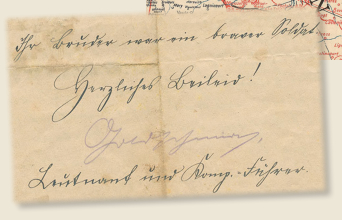 Ihr Bruder war ein braver Soldat
Herzliches Beileid!
Leutnant und Komp.-Führer.